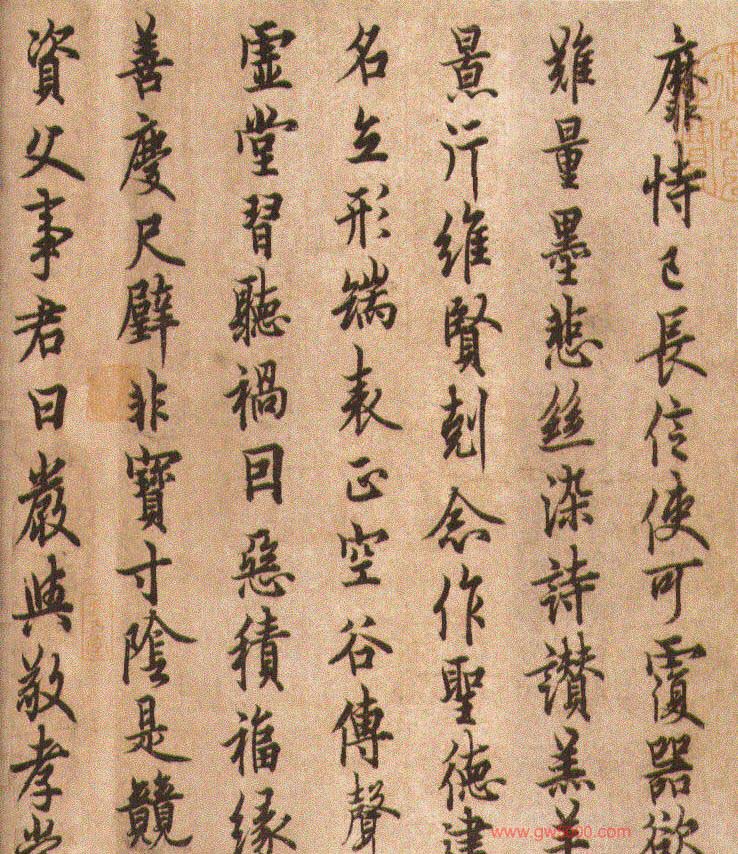 靡恃已長信使可覆器欲
難量墨悲絲染詩讃羔羊
景行維賢剋念作聖德建
名立形端表正空谷傳聲
虛堂習聽禍因惡積福緣
善慶尺璧非寶寸陰是競
資父事君曰嚴與敬孝當